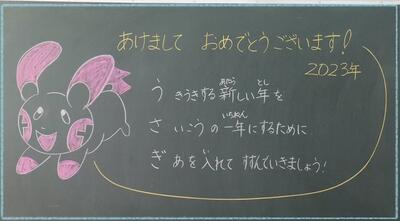 あけまして おめでとうございます!
2023年
う きうきする新しい年を
さ いこうの一年にするために
ぎ あを入れて すすんでいきましょう!